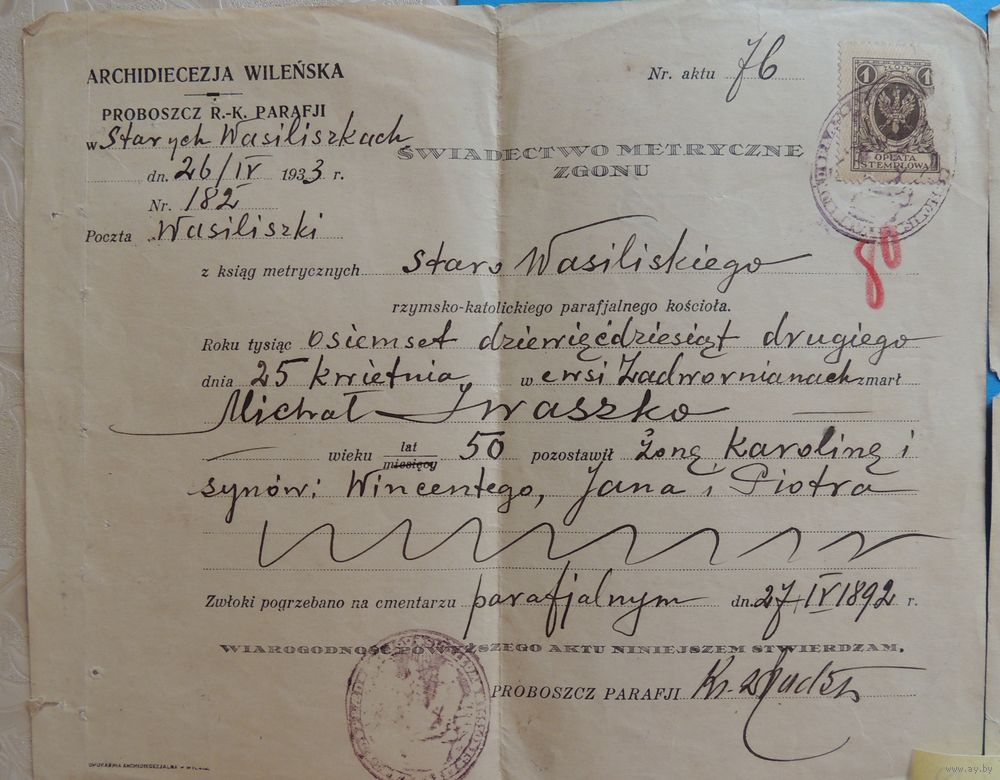 ARCHIDIECEZJA WILEŃSKA
PROBOSZCZ R.-K. PARAFJI
w Starych Wasiliszkach
dn. 26/IV 1933 r.
Nr. 182
Poczta Wasiliszki
Nr. aktu 76
1 ZŁOTY 1
OPŁATA
STEMPLOWA
ŚWIADECTWO METRYCZNE
ZGONU
80
z ksiąg metrycznych Staro Wasiliskiego
rzymsko-katolickiego parafjalnego kościoła.
Roku tysiąc osiemset dziewięćdziesiąt drugiego
dnia 25 kwietnia w ewsi Zadwornianach zmarł
Michał Iwaszko
wieku lat miesięcy 50 pozostawił żonę Karolinę i
synów: Wincentego, Jana i Piotra
Zwłoki pogrzebano na cmentarzu parafjalnym dn. 27/IV 1892 r.
WIAROGODNOŚĆ POWYŻSZEGO AKTU NINIEJSZEM STWIERDZAM.
PROBOSZCZ PARAFJI Ks.
DRUKARNIA ARCHIDIECEZJALNA W WILNIE
www.ay.by